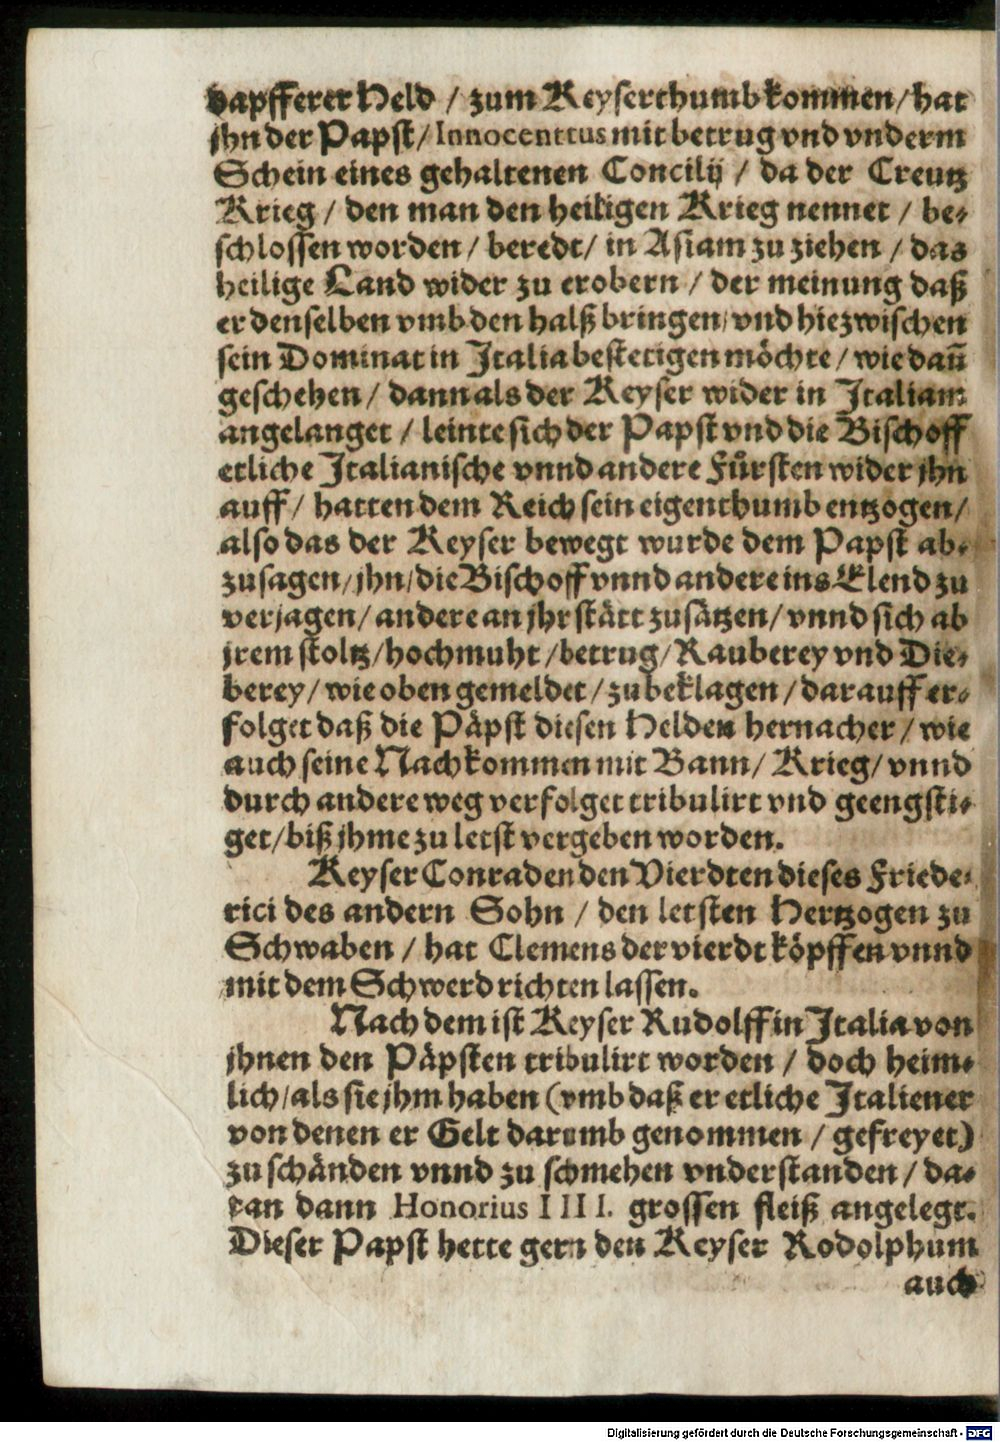 dapfferer Held / zum Keyserthumb kommen / hat
jhn der Papst / Innocentius mit betrug vnd vnderm
Schein eines gehaltenen Concilij / da der Creutz
Krieg / den man den heiligen Krieg nennet / be-
schlossen worden / beredt / in Asiam zu ziehen / das
heilige Land wider zu erobern / der meinung daß
er denselben vmb den halß bringen / vnd hiezwischen
sein Dominat in Italia bestetigen möchte / wie dañ
geschehen / dann als der Keyser wider in Italiam
angelanget / leinte sich der Papst vnd die Bischoff
etliche Italianische vnnd andere Fürsten wider jhn
auff / hatten dem Reich sein eigenthumb entzogen /
also das der Keyser bewegt wurde dem Papst ab-
zusagen / jhn / die Bischoff vnnd andere ins Elend zu
verjagen / andere an jhr stätt zusätzen / vnnd sich ab
jrem stoltz / hochmuht / betrug / Rauberey vnd Die-
berey / wie oben gemeldet / zubeklagen / darauff er-
folget daß die Päpst diesen Helden hernacher / wie
auch seine Nachkommen mit Bann / Krieg / vnnd
durch andere weg verfolget tribulirt vnd geengsti-
get / biß jhme zu letst vergeben worden.
Keyser Conraden den Vierdten dieses Friede-
rici des andern Sohn / den letsten Hertzogen zu
Schwaben / hat Clemens der vierdt köpffen vnnd
mit dem Schwerd richten lassen.
Nach dem ist Keyser Rudolff in Italia von
jhnen den Päpsten tribulirt worden / doch heim-
lich / als sie jhm haben (vmb daß er etliche Italiener
von denen er Gelt darumb genommen / gefreyet)
zu schänden vnnd zu schmehen vnderstanden / da-
ran dann Honorius IIII. grossen fleiß angelegt.
Dieser Papst hette gern den Keyser Rodolphum
auch
Digitalisierung gefördert durch die Deutsche Forschungsgemeinschaft - DFG